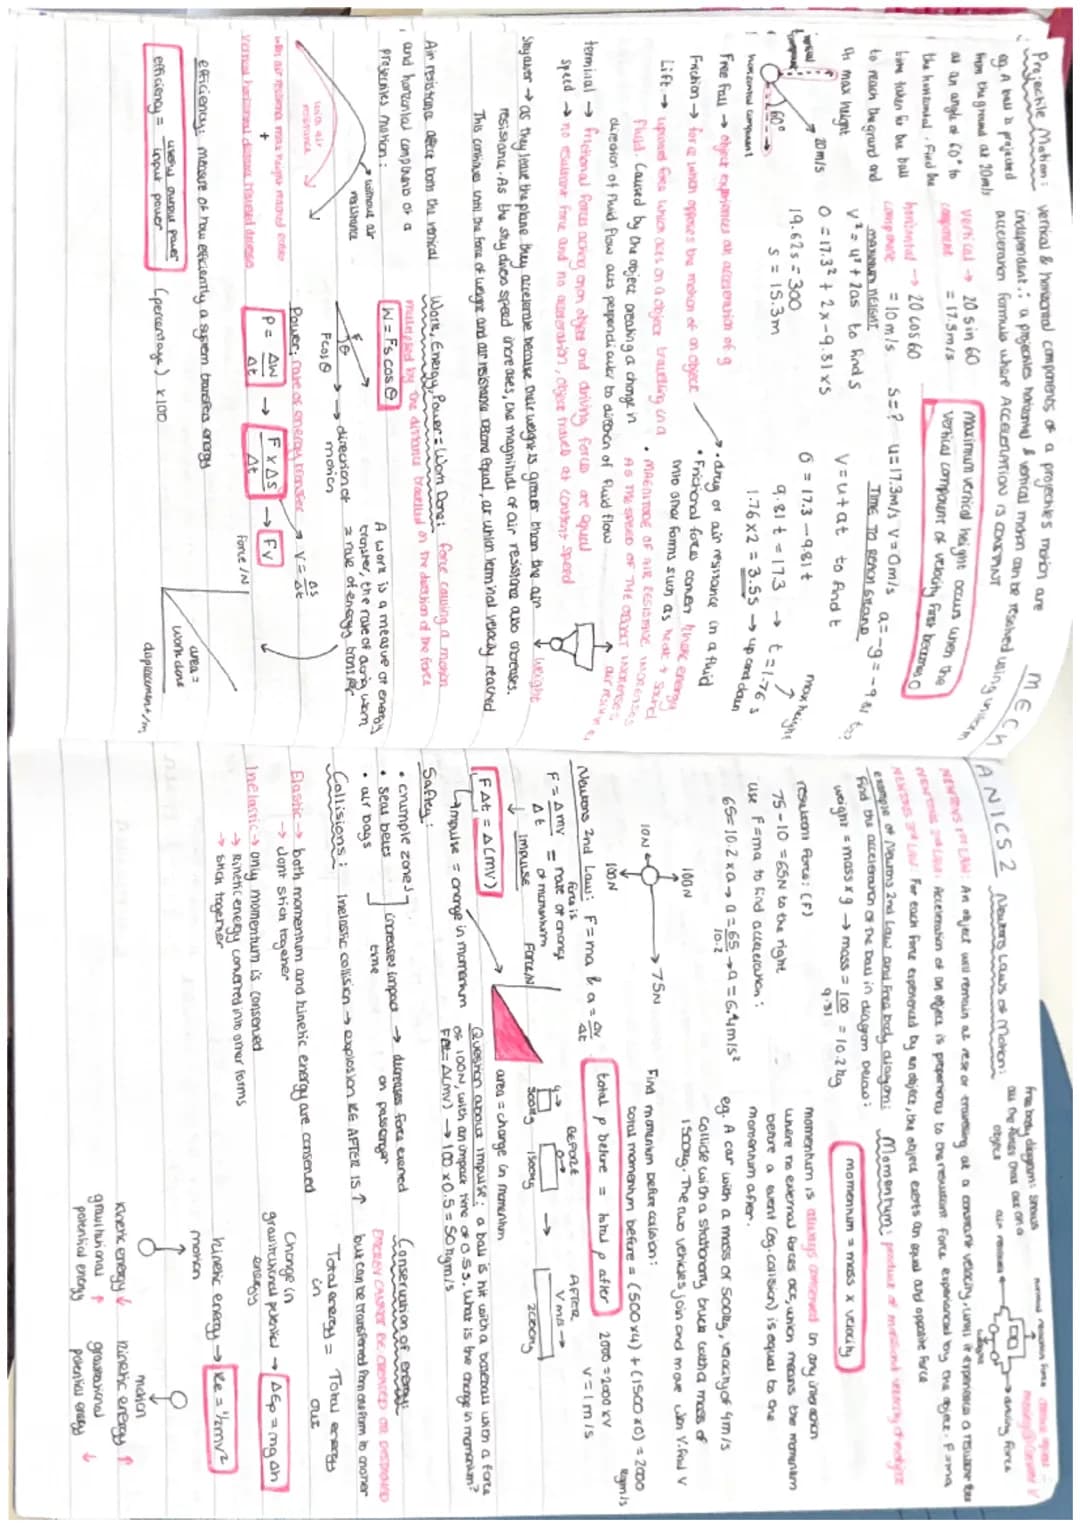 MECHANICS 2
Projectile Motion: vertical & horizontal components of a projectiles motion are
independent ∴ a projectiles horizontal & vertical motion can be resolved using uniform
acceleration formulas where Acceleration is CONSTANT
eg. A ball is projected
from the ground at 20m/s
at an angle of 60° to
the horizontal. Find the
time taken for the ball
to reach the ground and
its max height
vertical → 20 sin 60
component = 17.3m/s
horizontal → 20 cos 60
component = 10m/s
maximum vertical height occurs when the
vertical component of velocity first becomes 0
MAXIMUM HEIGHT
s=? u=17.3m/s v=0m/s a=-g=-9.81
v² = u² + 2as to find s
0 = 17.3² + 2 x -9.81 x s
19.62s = 300
s = 15.3m
TIME TO REACH GROUND
v = u + at to find t
0 = 17.3 - 9.81t
9.81t = 17.3 → t = 1.76 s
max height
1.76 x 2 = 3.5s → up and down
vertical
component
20m/s
60°
horizontal component
Free fall → object experiences an acceleration of g
Friction → force which opposes the motion of an object
• drag or air resistance in a fluid
• Frictional forces convert kinetic energy
into other forms such as heat & sound
• MAGNITUDE OF AIR RESISTANCE INCREASES
AS THE SPEED OF THE OBJECT INCREASES
Lift → upward force which acts on a object travelling in a
fluid. Caused by the object creating a change in
direction of fluid flow acts perpendicular to direction of fluid flow
terminal → frictional forces acting upon object and driving forces are equal
speed → no resultant force and no acceleration, object travels at constant speed
Skydiver → as they leave the plane they accelerate because their weight is greater than the air
resistance. As the sky divers speed increases, the magnitude of air resistance also increases.
This continues until the force of weight and air resistance become equal, at which terminal velocity reached
weight
Air resistance affects both the vertical
and horizontal components of a
projectiles motion:
without air
resistance
with air
resistance
with air resistance max height reached
+
vertical horizontal distance travelled
Work, Energy, Power: Work Done: force causing a motion
multiplied by the distance travelled in the direction of the force
W = Fs cos θ
F
θ
Fcosθ
direction of
motion
A work is a measure of energy
transfer, the rate of doing work
= rate of energy transfer
Power: rate of energy transfer
P = ΔW / Δt → F x Δs / Δt → Fv
v = Δs / Δt
efficiency: measure of how efficiently a system transfers energy
efficiency = useful output power / input power (percentage) x 100
force/N
area =
work done
displacement/m
Newtons Laws of Motion:
free body diagram: shows
all the forces that act on a
object
driving force
weight
NEWTONS 1st LAW: An object will remain at rest or travelling at a constant velocity, until it experiences a resultant force
NEWTONS 2nd LAW: Acceleration of an object is proportional to the resultant force experienced by the object. F=ma
NEWTONS 3rd LAW: For each force experienced by an object, the object exerts an equal and opposite force
example of Newtons 2nd Law and Free body diagram:
Find the acceleration of the ball in diagram below:
weight = mass x g → mass = 100 / 9.81 = 10.2kg
resultant force: (F)
75 - 10 = 65N to the right
use F=ma to find acceleration:
65 = 10.2 x a → a = 65 / 10.2 → a = 6.4m/s²
100N
10N
75N
100N
Newtons 2nd Law: F = ma & a = Δv / Δt
F = Δmv / Δt = force is rate of change of momentum
↓ impulse
FΔt = Δ(mv)
impulse = change in momentum
Force/N
area = change in momentum
Question about impulse: a ball is hit with a baseball with a force
of 100N, with an impact time of 0.5s. What is the change in momentum?
FΔt = Δ(mv) → 100 x 0.5 = 50 kgm/s
Momentum: product of mass and velocity of object
momentum = mass x velocity
momentum is always conserved in any interaction
where no external forces act, which means the momentum
before a event (eg. collision) is equal to the
momentum after.
eg. A car with a mass of 500kg, velocity of 4m/s
collide with a stationary truck with a mass of
1500kg. The two vehicles join and move with V. Find V
Find momentum before collision:
total momentum before = (500x4) + (1500x0) = 2000
kgm/s
total p before = total p after
2000 = 2000 x V
V = 1m/s
BEFORE
500kg
1500kg
AFTER
Vm/s →
2000kg
Saftey:
• crumple zones
• seat belts
• air bags
increases impact time → decreases force exerted
on passenger
Collisions: Inelastic collision → explosion KE AFTER IS ↑
Elastic → both momentum and kinetic energy are conserved
→ dont stick together
Inelastic → only momentum is conserved
→ kinetic energy converted into other forms
→ stick together
Conservation of energy:
ENERGY CANNOT BE CREATED OR DESTROYED
but can be transferred from one form to another
Total energy in = Total energy out
Change in
gravitational potential → ΔEp = mgΔh
energy
kinetic energy → Ke = ½mv²
motion
kinetic energy ↓
gravitational ↑
potential energy
motion
kinetic energy ↑
gravitational
potential energy ↓